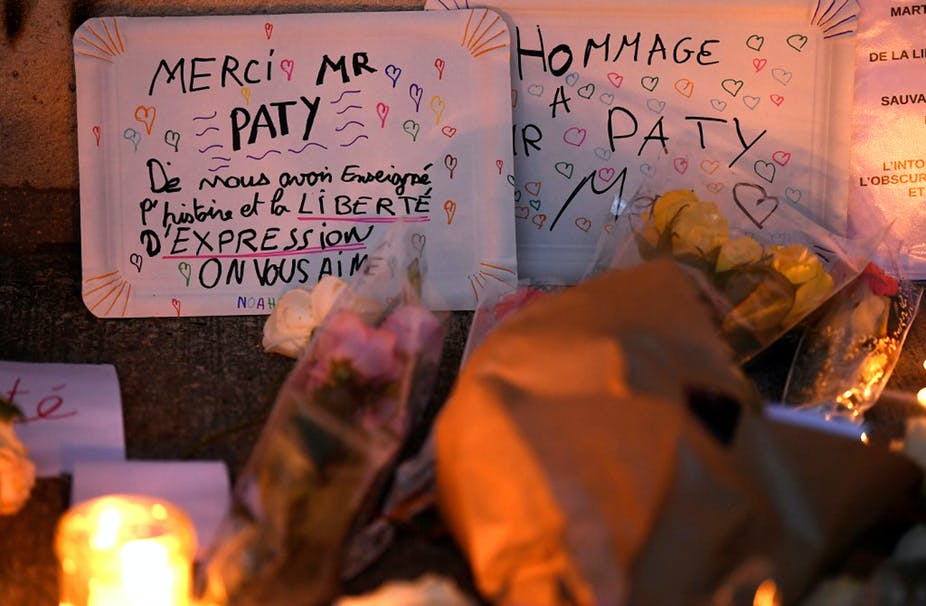 MERCI MR
PATY
De nous avoir Enseigné
l'histoire et la LIBERTÉ
D'EXPRESSION
ON VOUS AIME
NOAH
HOMMAGE
A
MR PATY
M
MART
DE LA LI
SAUVA
L'INTO
L'OBSCUR
ET
té